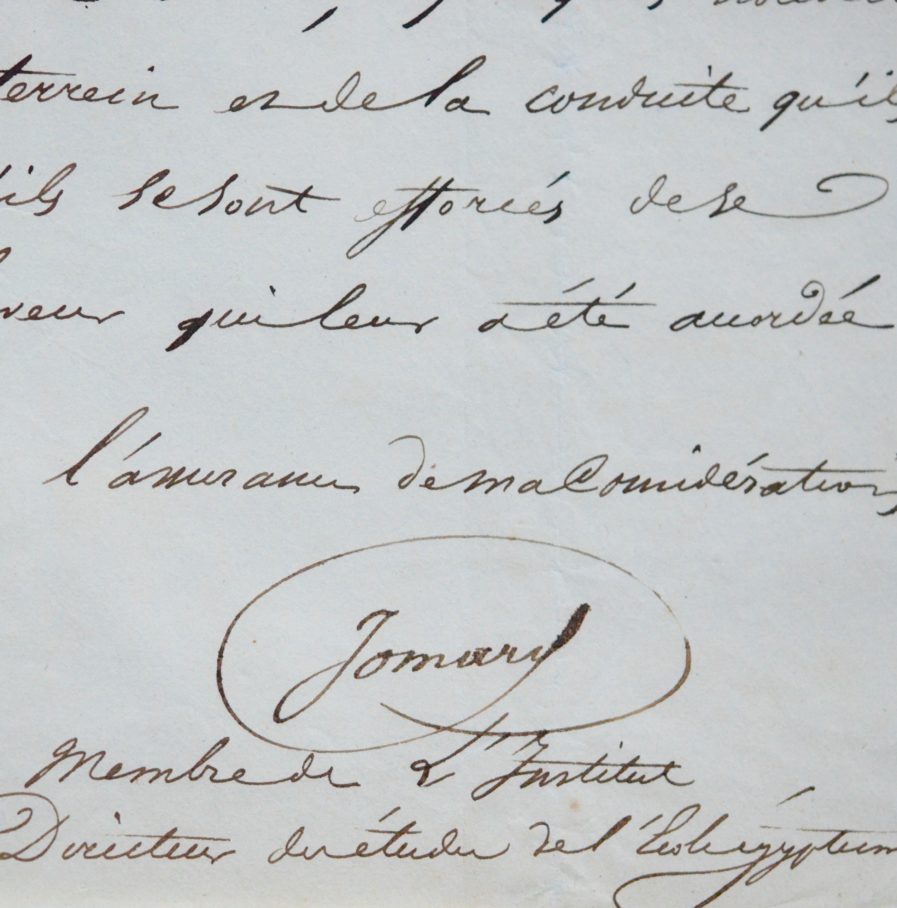 terrein et de la conduite qu'ils
'ils se sont efforcés de se
veur qui leur a été accordée
l'assurance de ma Considération,
Jomard
Membre de L'Institut
Directeur des études de l'École égyptienne